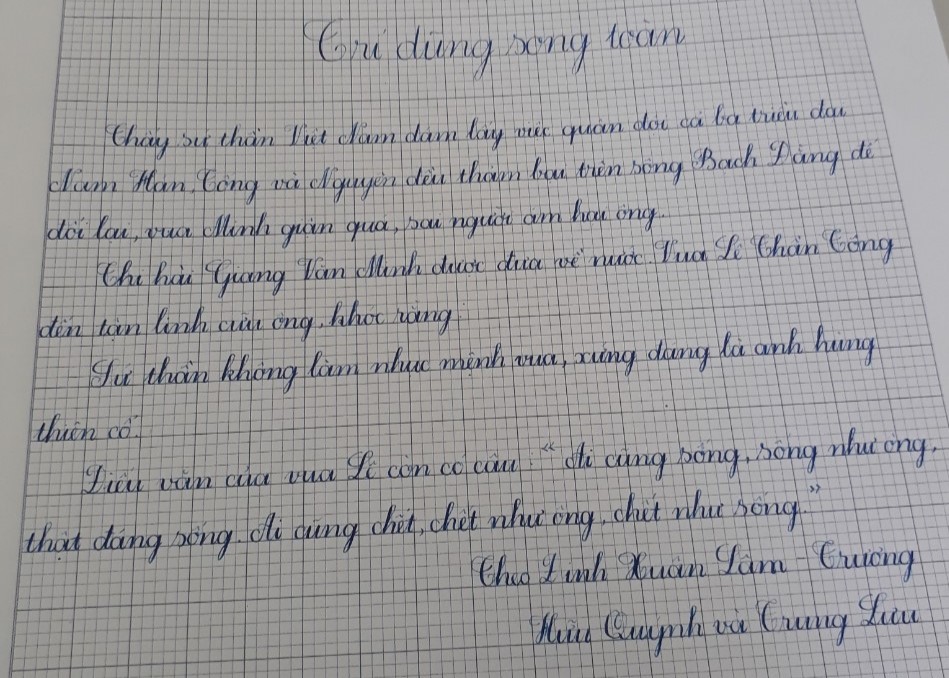 Trí dũng song toàn
Thấy sứ thần Việt Nam dám lấy việc quân đội cả ba triều đại
Nam Hán, Tống và Nguyên đều thảm bại trên sông Bạch Đằng để
đối lại, vua Minh giận quá, sai người ám hại ông.
Thi hài Giang Văn Minh được đưa về nước. Vua Lê Thần Tông
đến tận linh cữu ông, khóc rằng
Sứ thần không làm nhục mệnh vua, xứng đáng là anh hùng
thiên cổ.
Điếu văn của vua Lê còn có câu: "Ai cũng sống, sống như ông,
thật đáng sống. Ai cũng chết, chết như ông, chết như sống."
Theo Đinh Xuân Lâm - Trương
Hữu Quýnh và Trung Lưu